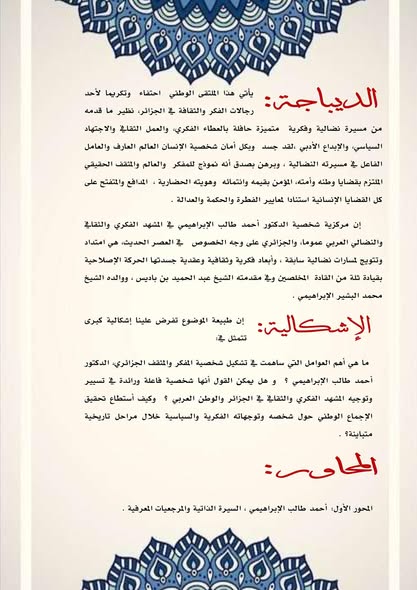 الديباجة:
يأتي هذا الملتقى الوطني احتفاء وتكريما لأحد
رجالات الفكر والثقافة في الجزائر، نظير ما قدمه
من مسيرة نضالية وفكرية متميزة حافلة بالعطاء الفكري، والعمل الثقافي والاجتهاد
السياسي، والإبداع الأدبي ،لقد جسد وبكل أمان شخصية الإنسان العالم العارف والعامل
الفاعل في مسيرته النضالية ، وبرهن بصدق أنه نموذج للمفكر والعالم والمثقف الحقيقي
الملتزم بقضايا وطنه وأمته، المؤمن بقيمه وانتمائه وهويته الحضارية ، المدافع والمتفتح على
كل القضايا الإنسانية استنادا لمعايير الفطرة والحكمة والعدالة .
إن مركزية شخصية الدكتور أحمد طالب الإبراهيمي في المشهد الفكري والثقافي
والنضالي العربي عموما، والجزائري على وجه الخصوص في العصر الحديث، هي امتداد
وتتويج لمسارات نضالية سابقة ، وأبعاد فكرية وثقافية وعقدية جسدتها الحركة الإصلاحية
بقيادة ثلة من القادة المخلصين وفي مقدمته الشيخ عبد الحميد بن باديس ، ووالده الشيخ
محمد البشير الإبراهيمي .
الإشكالية:
إن طبيعة الموضوع تفرض علينا إشكالية كبرى
تتمثل في:
ما هي أهم العوامل التي ساهمت في تشكيل شخصية المفكر والمثقف الجزائري، الدكتور
أحمد طالب الإبراهيمي ؟ و هل يمكن القول أنها شخصية فاعلة ورائدة في تسيير
وتوجيه المشهد الفكري والثقافي في الجزائر والوطن العربي ؟ وكيف أستطاع تحقيق
الإجماع الوطني حول شخصه وتوجهاته الفكرية والسياسية خلال مراحل تاريخية
متباينة؟ .
المحاور:
المحور الأول: أحمد طالب الإبراهيمي ، السيرة الذاتية والمرجعيات المعرفية .